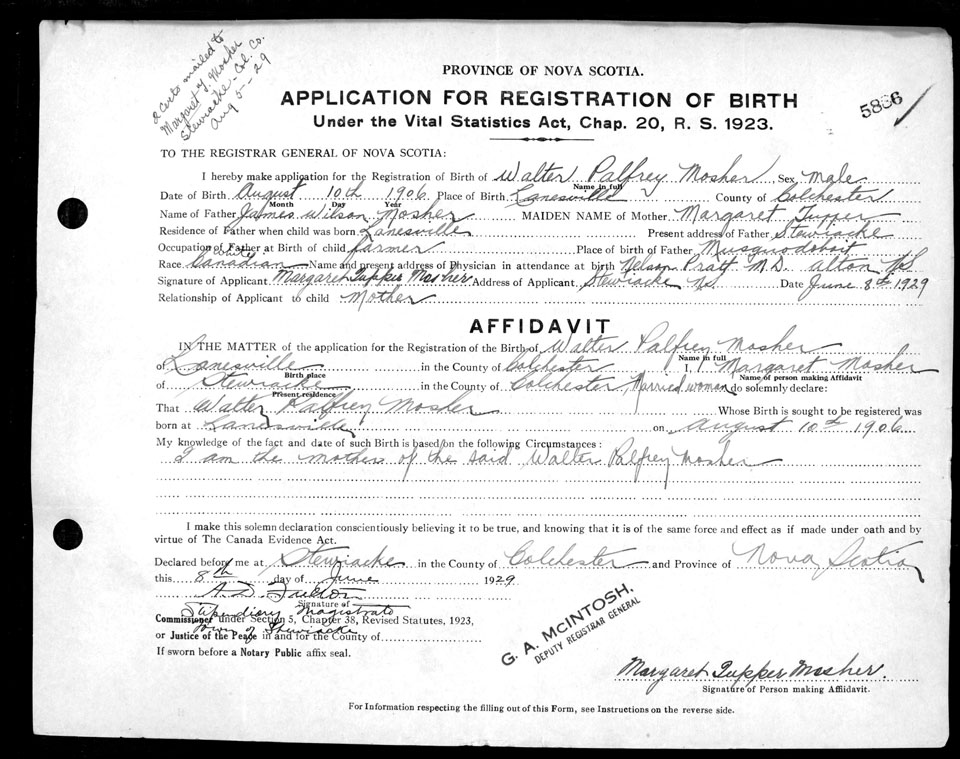 2 Certs mailed to
Margaret T. Mosher
Stewiacke - Col. Co.
Aug 5 - 29
PROVINCE OF NOVA SCOTIA.
5836
APPLICATION FOR REGISTRATION OF BIRTH
Under the Vital Statistics Act, Chap. 20, R. S. 1923.
TO THE REGISTRAR GENERAL OF NOVA SCOTIA:
I hereby make application for the Registration of Birth of Walter Palfrey Mosher Sex Male
Name in full
Date of Birth August 10th 1906 Place of Birth Lanesville County of Colchester
Month Day Year
Name of Father James Wilson Mosher MAIDEN NAME of Mother Margaret Tupper
Residence of Father when child was born Lanesville Present address of Father Stewiacke
Occupation of Father at Birth of child farmer Place of birth of Father Musquodoboit
White
Race Canadian Name and present address of Physician in attendance at birth Nelson Pratt M.D. Alton NS
Signature of Applicant Margaret Tupper Mosher Address of Applicant Stewiacke NS Date June 8th 1929
Relationship of Applicant to child Mother
AFFIDAVIT
IN THE MATTER of the application for the Registration of the Birth of Walter Palfrey Mosher
Name in full
of Lanesville in the County of Colchester I, Margaret Mosher
Birth place Name of person making Affidavit
of Stewiacke in the County of Colchester, Married woman do solemnly declare:
Present residence
That Walter Palfrey Mosher Whose Birth is sought to be registered was
born at Lanesville on August 10th 1906
My knowledge of the fact and date of such Birth is based on the following Circumstances:
I am the mother of the said Walter Palfrey Mosher
I make this solemn declaration conscientiously believing it to be true, and knowing that it is of the same force and effect as if made under oath and by
virtue of The Canada Evidence Act.
Declared before me at Stewiacke in the County of Colchester and Province of Nova Scotia
this 8th day of June 1929
A. D. Fulton
Signature of
Stipendiary Magistrate
Commissioner under Section 5, Chapter 38, Revised Statutes, 1923,
Town of Stewiacke
or Justice of the Peace in and for the County of
If sworn before a Notary Public affix seal.
G. A. McINTOSH.
DEPUTY REGISTRAR GENERAL
Margaret Tupper Mosher.
Signature of Person making Affidavit.
For Information respecting the filling out of this Form, see Instructions on the reverse side.